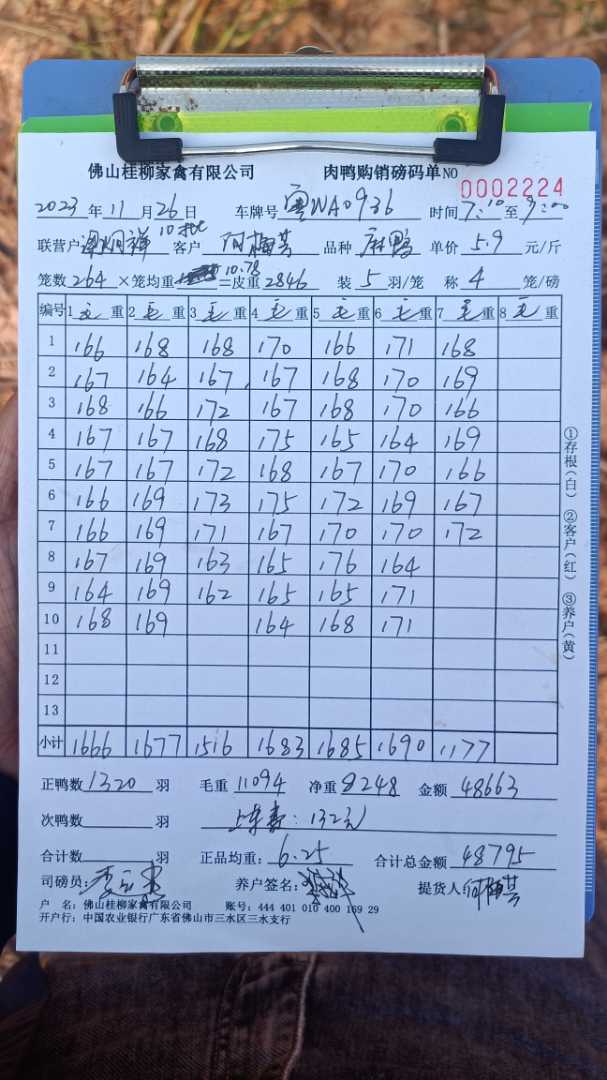 佛山桂柳家禽有限公司 肉鸭购销磅码单 NO 0002224
2023 年 11 月 26 日 车牌号 粤WA0936 时间 7:10 至 9:00
联营户 10批 客户 何梅芳 品种 麻鸭 单价 5.9 元/斤
笼数 264 ×笼均重 10.78 =皮重 2846 装 5 羽/笼 称 4 笼/磅
编号 1 毛 重 2 毛 重 3 毛 重 4 毛 重 5 毛 重 6 毛 重 7 毛 重 8 毛 重
1 166 168 168 170 166 171 168
2 167 164 167 167 168 170 169
3 168 166 172 167 168 170 166
4 167 167 168 175 165 164 169
5 167 167 172 168 167 170 166
6 166 169 173 175 172 169 167
7 166 169 171 167 170 170 172
8 167 169 163 165 176 164
9 164 169 162 165 165 171
10 168 169 164 168 171
11
12
13
小计 1666 1677 1516 1683 1685 1690 1177
正鸭数 1320 羽 毛重 11094 净重 8248 金额 48663
次鸭数 羽 上车费：132元
合计数 羽 正品均重： 6.25 合计总金额 48795
司磅员： 养户签名： 提货人 何梅芳
户 名：佛山桂柳家禽有限公司 账号：444 401 010 400 169 29
开户行：中国农业银行广东省佛山市三水区三水支行
①存根（白） ②客户（红） ③养户（黄）